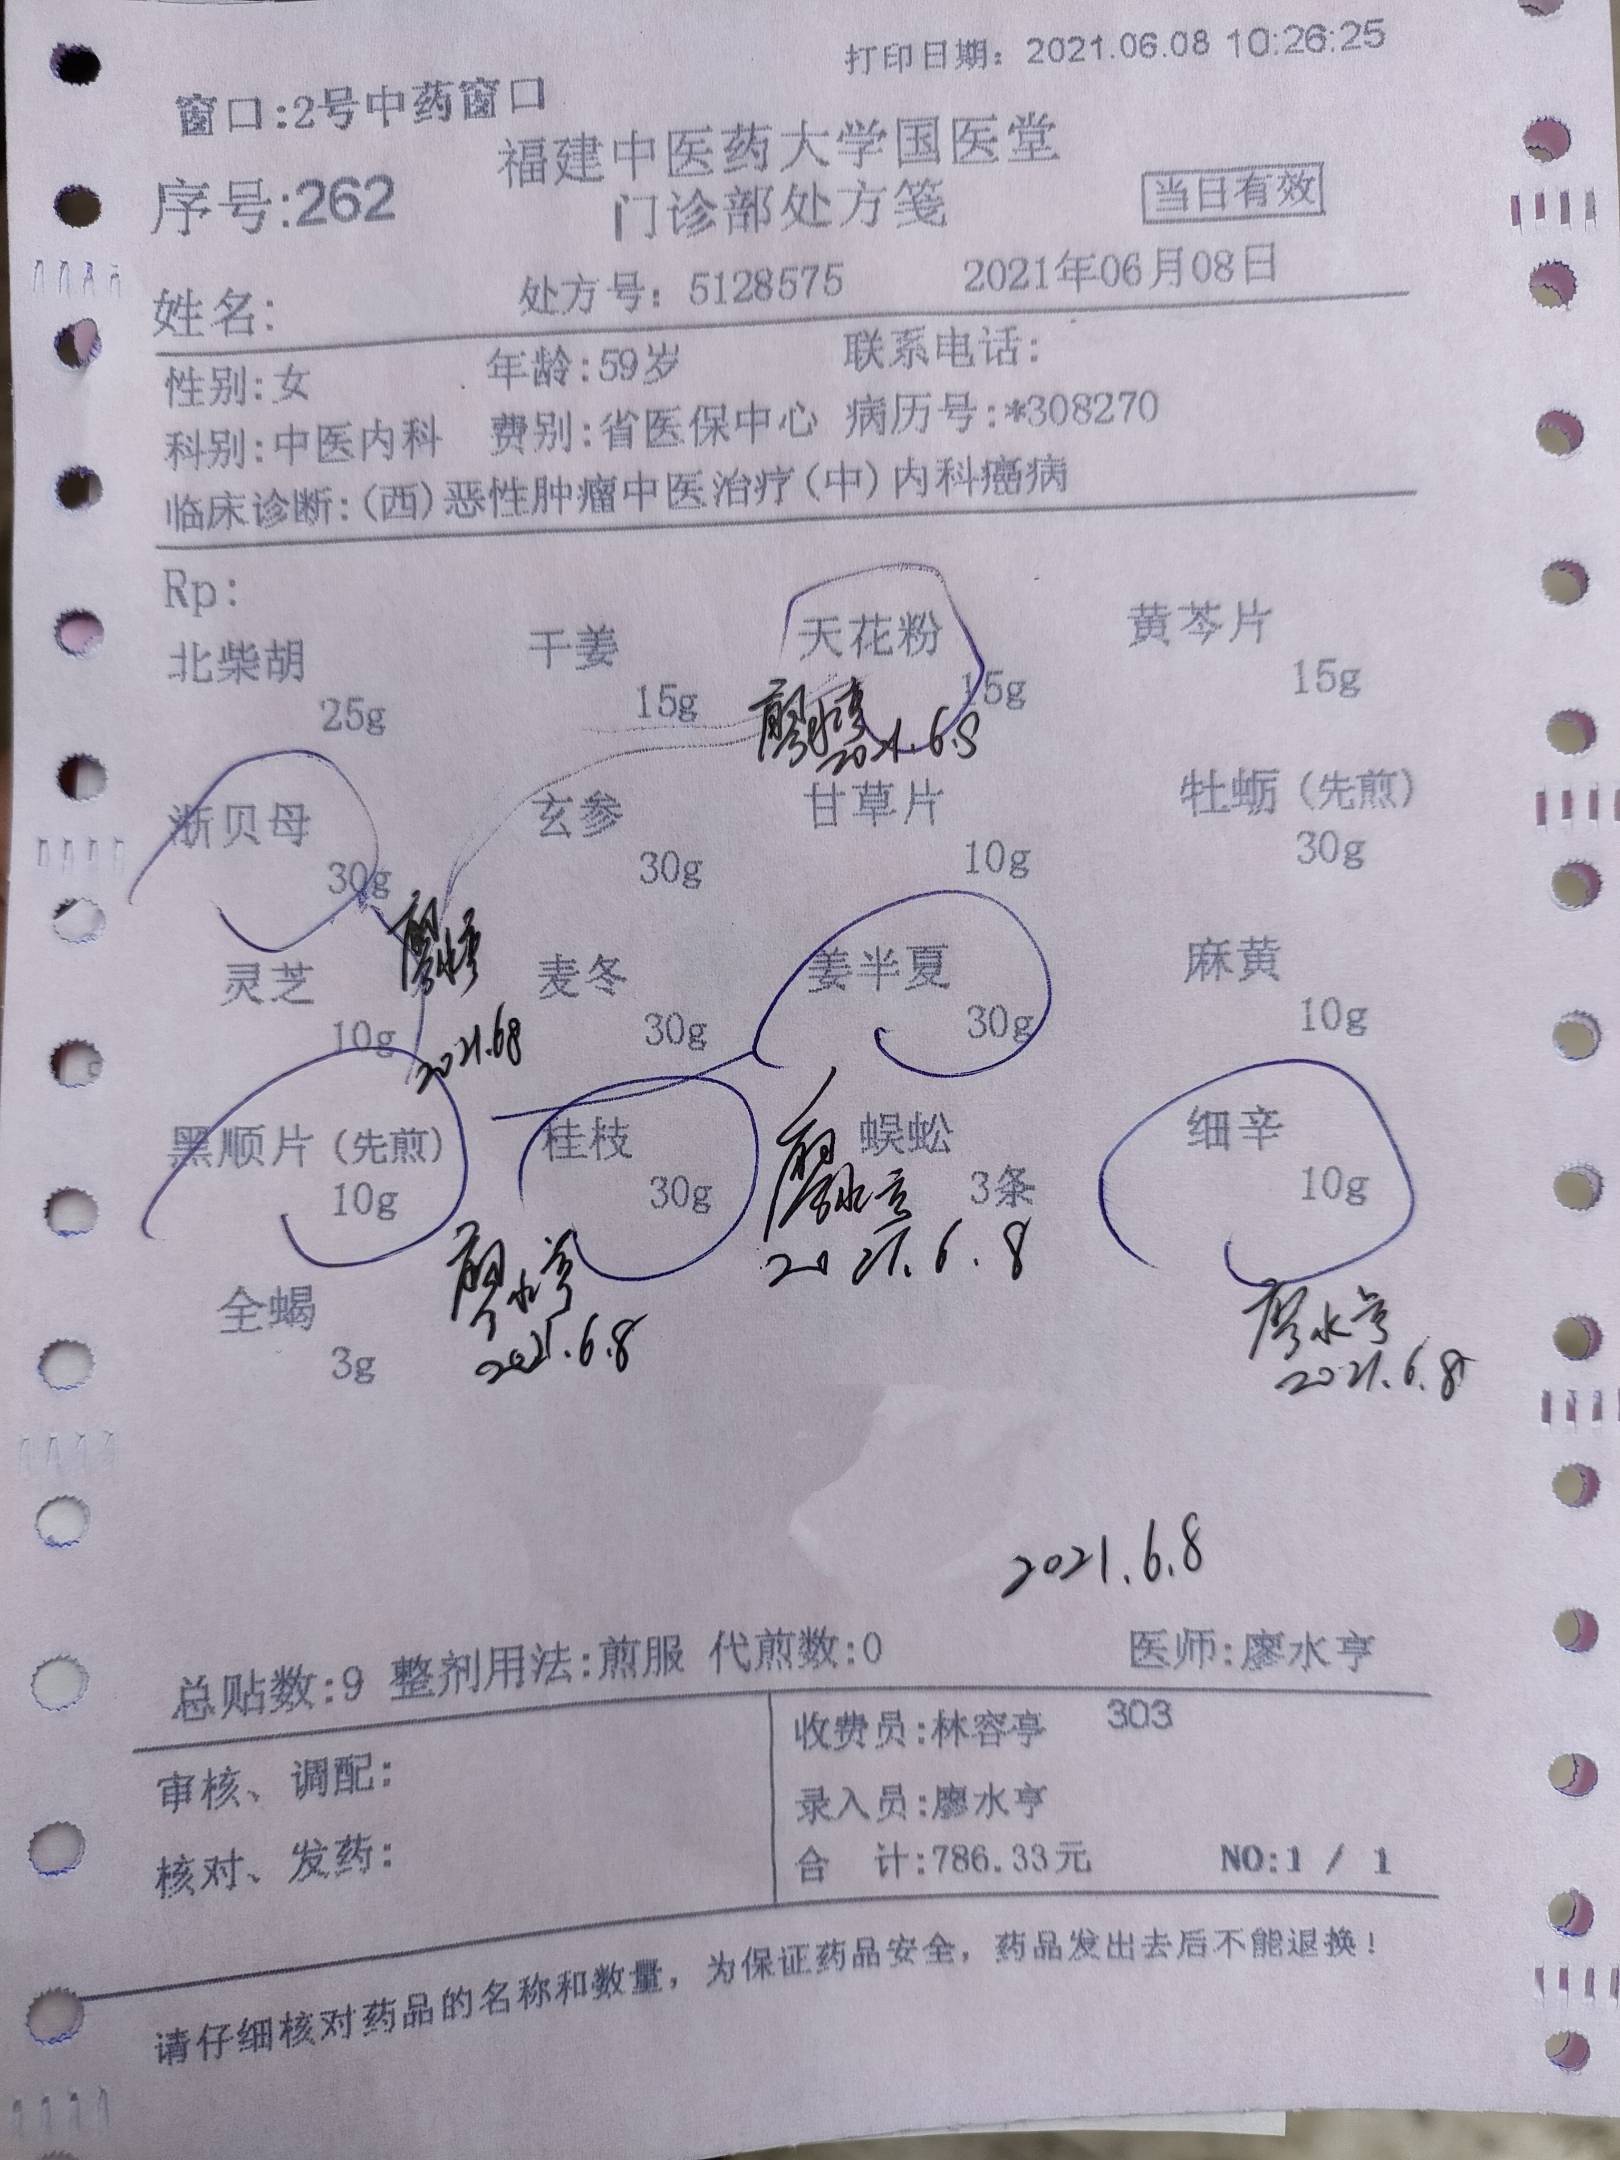 打印日期：2021.06.08 10:26:25
窗口:2号中药窗口
福建中医药大学国医堂
序号:262 门诊部处方笺 当日有效
姓名: 处方号：5128575 2021年06月08日
性别:女 年龄:59岁 联系电话:
科别:中医内科 费别:省医保中心 病历号:*308270
临床诊断:(西)恶性肿瘤中医治疗(中)内科癌病
Rp:
北柴胡 干姜 天花粉 黄芩片
25g 15g 15g 15g
廖水亨
2021.6.8
浙贝母 玄参 甘草片 牡蛎(先煎)
30g 30g 10g 30g
廖水亨
灵芝 麦冬 姜半夏 麻黄
10g 30g 30g 10g
2021.6.8
黑顺片(先煎) 桂枝 蜈蚣 细辛
10g 30g 3条 10g
廖水亨 廖水亨
2021.6.8 2021.6.8
全蝎 廖水亨
3g 2021.6.8
2021.6.8
总贴数:9 整剂用法:煎服 代煎数:0 医师:廖水亨
收费员:林容亭 303
审核、调配:
录入员:廖水亨
核对、发药:
合 计:786.33元 NO:1 / 1
请仔细核对药品的名称和数量，为保证药品安全，药品发出去后不能退换！